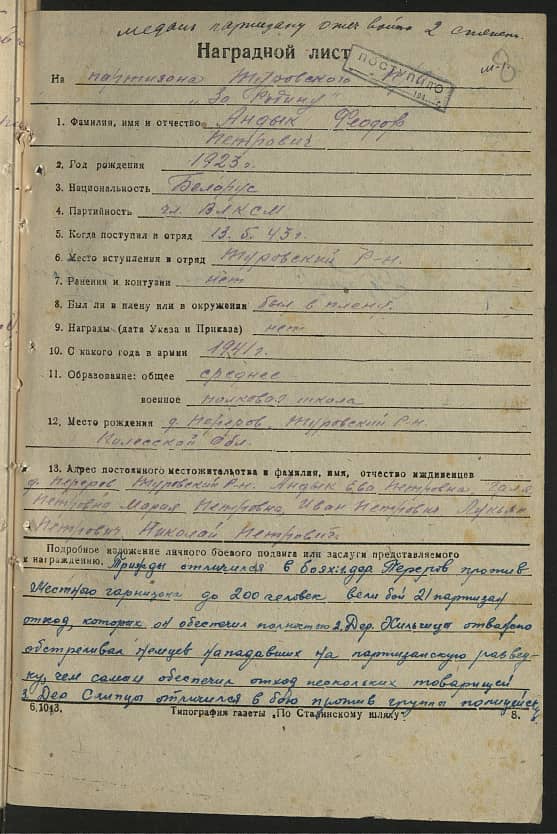 медаль партизану отеч войны 2 степен.
Наградной лист
ПОСТУПИЛО
На партизана Житковского
"За Родину"
1. Фамилия, имя и отчество Андык Феодор
Петрович
2. Год рождения 1923 г.
3. Национальность Белорус
4. Партийность чл. ВЛКСМ
5. Когда поступил в отряд 13. 5. 43 г.
6. Место вступления в отряд Туровский Р-н.
7. Ранения и контузии нет
8. Был ли в плену или в окружении был в плену.
9. Награды (дата Указа и Приказа) нет
10. С какого года в армии 1941 г.
11. Образование: общее среднее
военное полковая школа
12. Место рождения д. Переров, Туровский Р-н.
Полесской Обл.
13. Адрес постоянного местожительства и фамилия, имя, отчество иждивенцев
д. Переров Туровский Р-н. Андык Ева Петровна, Галя
Петровна Мария Петровна, Иван Петрович Лукьян
Петрович, Николай Петрович.
Подробное изложение личного боевого подвига или заслуги представляемого
к награждению. Трижды отличился в боях: 1. дер Переров против
местного гарнизона до 200 человек вели бой 21 партизан
отход, которых он обеспечил полностью 2. Дер. Хильчицы отважно
обстреливал немцев нападавших на партизанскую развед-
ку, чем самым обеспечил отход нескольких товарищей,
3. Дер Слипцы отличился в бою против группы полицейск
6.1013. Типография газеты „По Сталинскому шляху" 8.